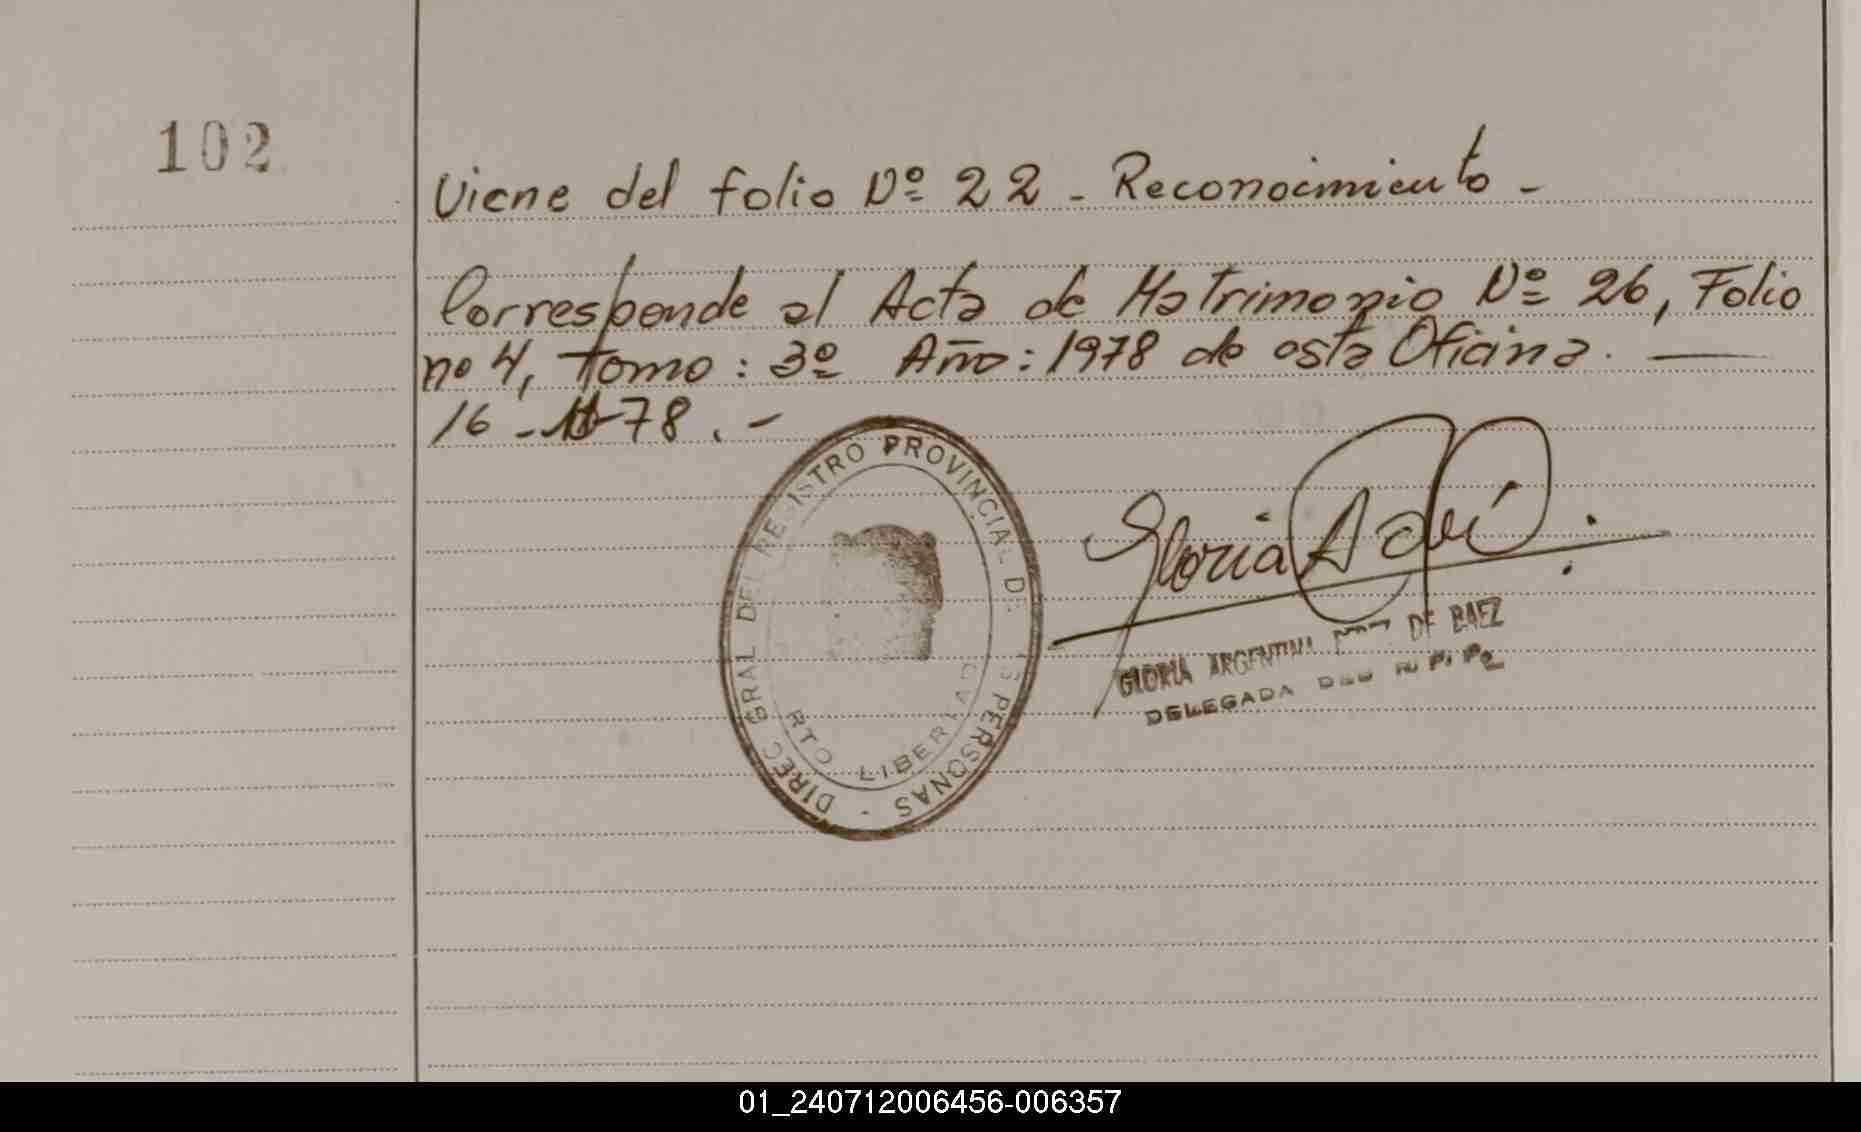 102
Viene del folio Nº 22 - Reconocimiento -
Corresponde al Acta de Matrimonio Nº 26, Folio
nº 4, Tomo : 3º Año : 1978 de esta Oficina. —
16 - 11-78. -
DIREC GRAL DEL REGISTRO PROVINCIAL DE LAS PERSONAS -
RTO LIBERTAD
Gloria
GLORIA ARGENTINA DE BAEZ
DELEGADA DEL R. P. P.
01_240712006456-006357